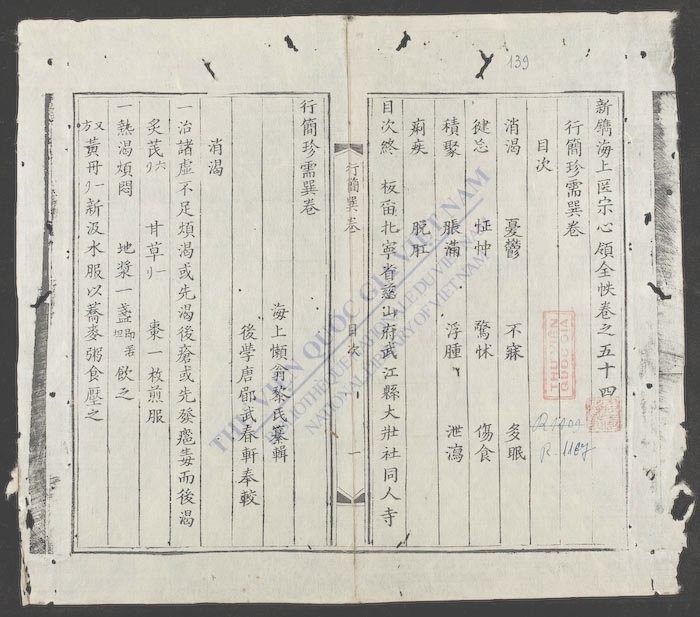 139
新鐫海上医宗心領全帙卷之五十四
行簡珍需巽卷
目次
消渴 憂鬱 不寐 多眠
健忘 怔忡 驚怵 傷食
積聚 脹滿 浮腫 泄瀉
痢疾 脫肛
目次終 板留北寧省慈山府武江縣大壯社同人寺
行簡巽卷 目次 一
行簡珍需巽卷
海上懶翁黎氏纂輯
後學唐郿武春軒奉較
消渴
一治諸虛不足煩渴或先渴後瘡或先發癰毒而後渴
炙芪六 甘草一 棗一枚煎服
一熱渴煩悶 地漿一盞 飲之
又方黃丹一新汲水服以蕎麥粥食壓之
THƯ VIỆN QUỐC GIA VIỆT NAM
BIBLIOTHÈQUE NATIONALE DU VIETNAM
NATIONAL LIBRARY OF VIETNAM
THƯ VIỆN
QUỐC GIA